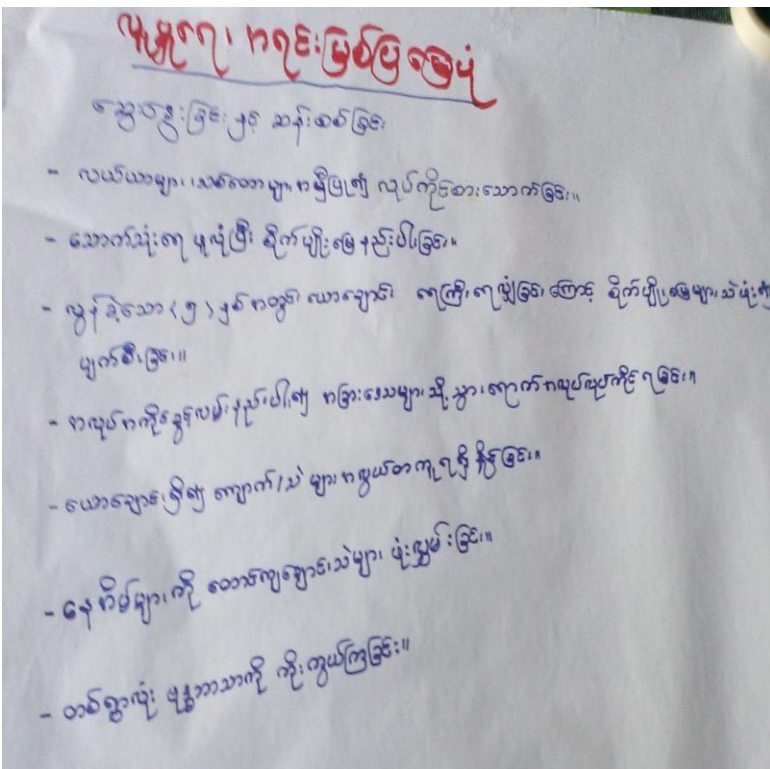 လူမှုရေး အရင်းအမြစ်ပြ မြေပုံ
ဆွေးနွေးခြင်းနှင့် ဆန်းစစ်ခြင်း
- လယ်ယာများ၊ သစ်တောများ အမှီပြု၍ လုပ်ကိုင်စားသောက်ခြင်း။
- သောက်သုံးရေ ဖူလုံပြီး စိုက်ပျိုးမြေ နည်းပါးခြင်း။
- လွန်ခဲ့သော (၅) နှစ်အတွင်း ယောချောင်း ရေကြီးရေလျှံခြင်းကြောင့် စိုက်ပျိုးမြေများ သဲဖုံး၍
ပျက်စီးခြင်း။
- အလုပ်အကိုင်အခွင့်လမ်း နည်းပါး၍ အခြားဒေသများသို့ သွားရောက် အလုပ်လုပ်ကိုင်ရခြင်း။
- ယောချောင်းရှိ၍ ကျောက်/သဲ များ အလွယ်တကူ ရရှိနိုင်ခြင်း။
- နေအိမ်များကို တောင်ကျချောင်းသဲများ ဖုံးလွှမ်းခြင်း။
- တစ်ရွာလုံး ဗုဒ္ဓဘာသာကို ကိုးကွယ်ကြခြင်း။